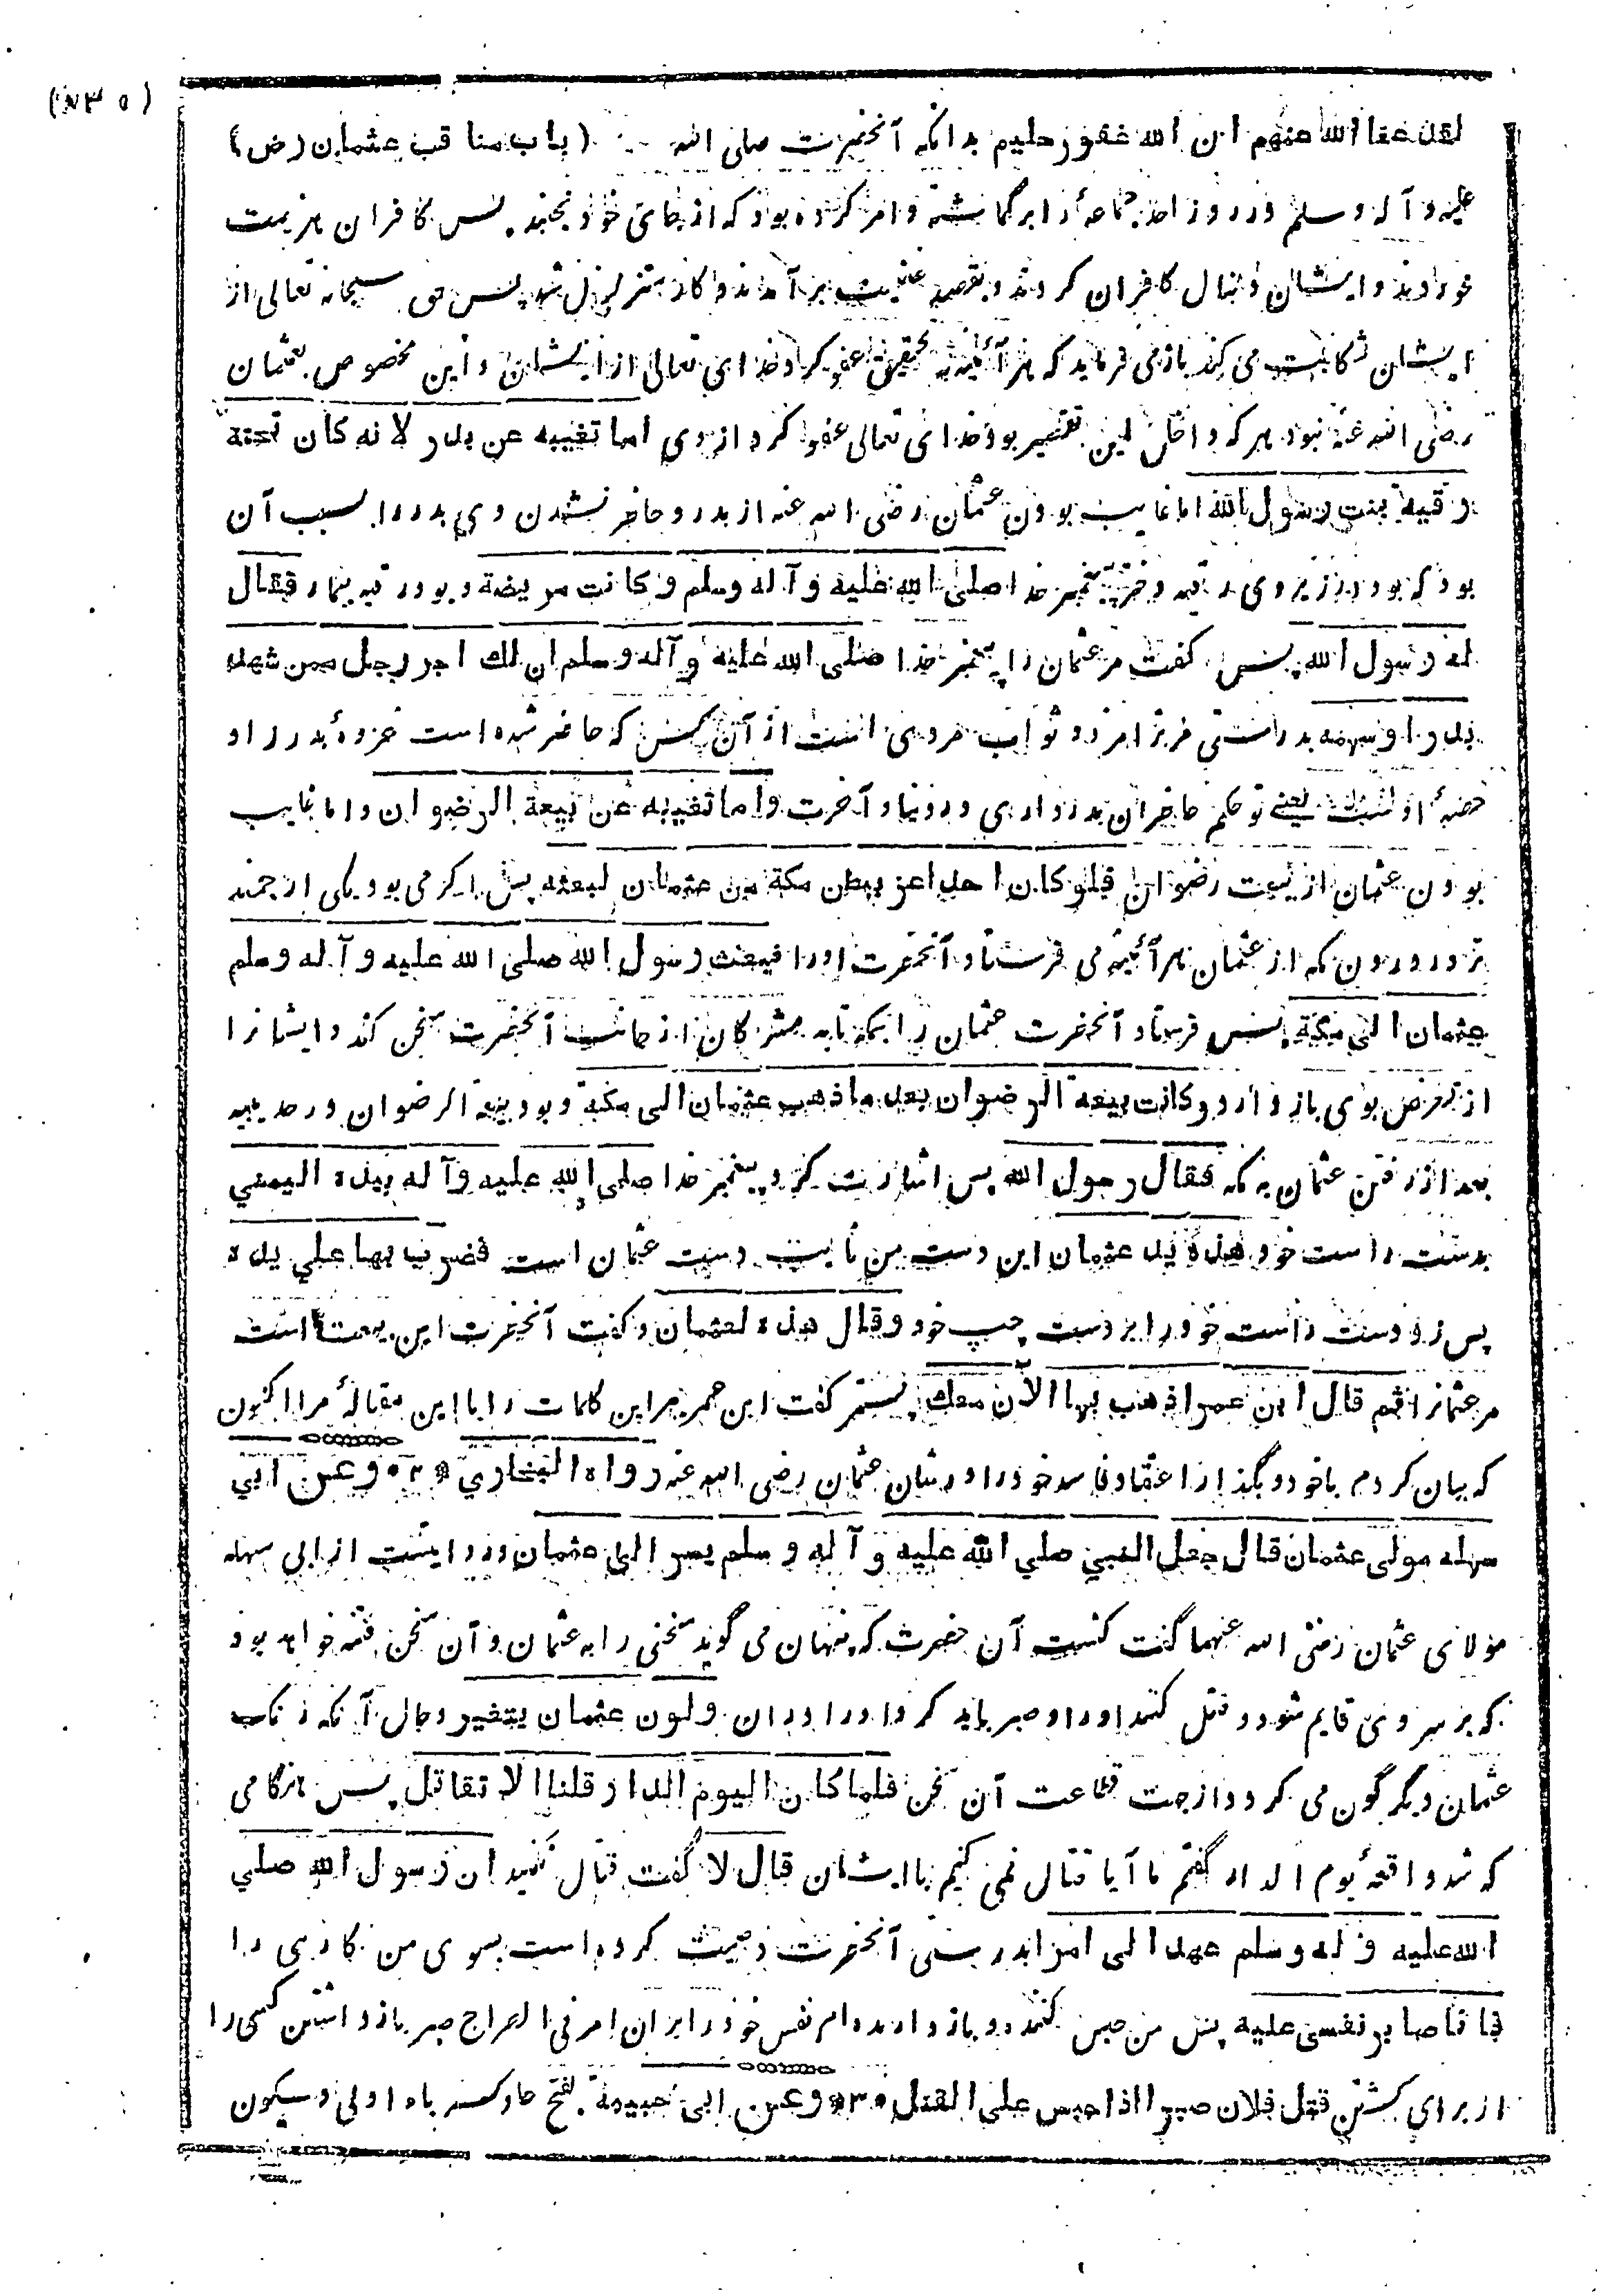 (۵۳۸)
لقد عفا الله عنهم ان الله غفور حليم بدانكه آنحضرت صلى الله (باب مناقب عثمان (رض)
عليه و آله وسلم در روز احد جماعهٔ را بر گماشته و امر كرده بود كه از جاى خود نجنبد پس كافران هزيمت
خوردند و ايشان دنبال كافران كردند و بقصد غنيمت بر آمدند و كار متزلزل شد پس حق سبحانه تعالى از
ايشان شكايت مى كند باز مى فرمايد كه هر آئينه بتحقيق عفو كرد خداى تعالى از ايشان و اين مخصوص بعثمان
رضى الله عنه نبود هر كه داخل اين تقصير بود خداى تعالى عفو كرد از وى اما تغيبه عن بدر لانه كان تحته
رقية بنت رسول الله اما غايب بودن عثمان رضى الله عنه از بدر و حاضر نشدن وى بدر را بسبب آن
بود كه بود در زير وى رقيه دختر پيغمبر خدا صلى الله عليه و آله وسلم و كانت مريضة و بود رقيه بيمار فقال
له رسول الله پس گفت مر عثمان را پيغمبر خدا صلى الله عليه و آله وسلم ان لك اجر رجل ممن شهد
بدرا و سهمه بدرستى مر ترا مزد و ثواب مردى است از آن كس كه حاضر شده است غزوهٔ بدر را و
حصهٔ او است يعنے تو حكم حاضران بدر دارى در دنيا و آخرت و اما تغيبه عن بيعة الرضوان و اما غايب
بودن عثمان از بيعت رضوان فلو كان احد اعز ببطن مكة من عثمان لبعثه پس اگر مى بود يكى ارجمند
تر در درون مكه از عثمان هر آئينه مى فرستاد آنحضرت اورا فبعث رسول الله صلى الله عليه و آله وسلم
عثمان الى مكة پس فرستاد آنحضرت عثمان را بمكه تا به مشركان از جانب آنحضرت سخن كند و ايشانرا
از تعرض بوى باز دارد و كانت بيعة الرضوان بعد ما ذهب عثمان الى مكة و بود بيعة الرضوان در حديبيه
بعد از رفتن عثمان به مكه فقال رسول الله پس اشارت كرد پيغمبر خدا صلى الله عليه و آله بيده اليمني
بدست راست خود هذه يد عثمان اين دست من نايب دست عثمان است فضرب بها علي يده
پس زد دست راست خود را بر دست چپ خود و قال هذه لعثمان و گفت آنحضرت اين بيعت است
مر عثمانرا ثم قال ابن عمر اذهب بها الآن معك پستر گفت ابن عمر ببر اين كلمات را با اين مقالهٔ مرا اكنون
كه بيان كردم با خود و بگذار اعتقاد فاسد خود را در شان عثمان رضى الله عنه رواه البخاري * ۲ * وعن ابي
سهله مولى عثمان قال جعل النبي صلي الله عليه و آله وسلم يسر الى عثمان و روايتست از ابى سهله
مولاى عثمان رضى الله عنهما گفت گشت آن حضرت كه پنهان مى گويد سخنى را به عثمان و آن سخن فتنه خواهد بود
كه بر سر وى قايم شود و قتل كنند اورا و صبر بايد كرد اورا در آن و لون عثمان يتغير و حال آنكه رنگ
عثمان ديگرگون مى گردد از جهت فظاعت آن سخن فلما كان اليوم الدار قلنا الا تقاتل پس هرگامى
كه شد واقعهٔ يوم الدار گفتم ما آيا قتال نمى كنيم با ايشان قال لا گفت قتال نكنيد ان رسول الله صلي
الله عليه و له وسلم عهد الى امرا بدرستى آنحضرت وصيت كرده است بسوى من كارى را
فانا صابر نفسى عليه پس من حبس كننده و باز دارنده ام نفس خود را بر آن امر فى الصراح صبر باز داشتن كسى را
از براى كشتن قتل فلان صبرا اذا حبس على القتل * ۳ * وعن ابى حبيبة بفتح حا و كسر باء اولى و سكون